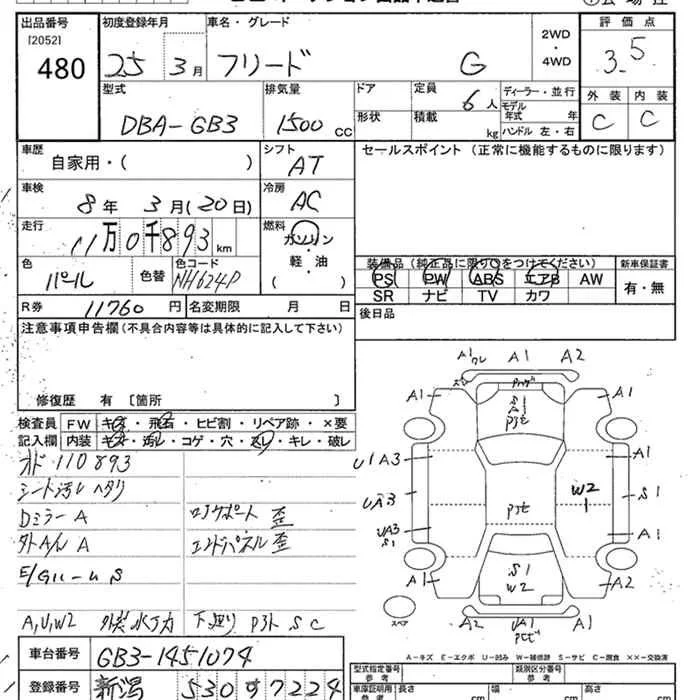 出品番号 初度登録年月 車名・グレード 2WD・4WD 評価点
[2052]
480 25年 3月 フリード G 3.5
型式 排気量 ドア 定員 ディーラー・並行 外装 内装
DBA-GB3 1500cc 6人 モデル年式 年 C C
形状 積載 kg ハンドル 左・右
車歴 シフト セールスポイント (正常に機能するものに限ります)
自家用・( ) AT
車検 冷房
8年 3月(20日) AC
走行 燃料
11万0千893km ガソリン
軽・油
( )
色 色替 色コード
パール NH624P
装備品(純正品に限り○をつけてください) 新車保証書
PS PW ABS エアB AW 有・無
SR ナビ TV カワ
R券 11760円 名変期限 月 日 後日品
注意事項申告欄(不具合内容等は具体的に記入して下さい)
修復歴 有 〔箇所 〕
検査員記入欄 FW キズ・飛石・ヒビ割・リペア跡・×要
内装 キズ・汚レ・コゲ・穴・スレ・キレ・破レ
オド 110893
シート汚レ ヘタリ
Dミラー A ロアサポート 歪
外A/ル A エンドパネル 歪
A,U,W2 下廻り P3ト S C
A1 ワレ A1 A2
A1 A1
S1 A1 P3t
U1 A3 A1
UA3 W2 S1
UA3 S1 P3t A1
A1 S1 W2 A2
スペア A2 UA1 A1
車台番号 GB3-1451074
登録番号 新潟 530 す 7224
A-キズ E-エクボ U-凹み W-補修跡 S-サビ C-腐食 XX-交換済
型式指定番号 類別区分番号
車庫証明用 長さ cm 幅 cm 高さ cm